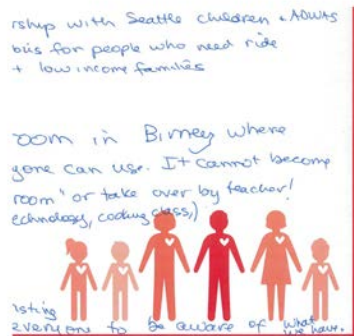 rship with Seattle children + ADWAS
bus for people who need ride
+ low income families
oom in Birney where
yone can use. It cannot become
room" or take over by teacher!
echnology, coding class,)
isting
everyone to be aware of what we have.